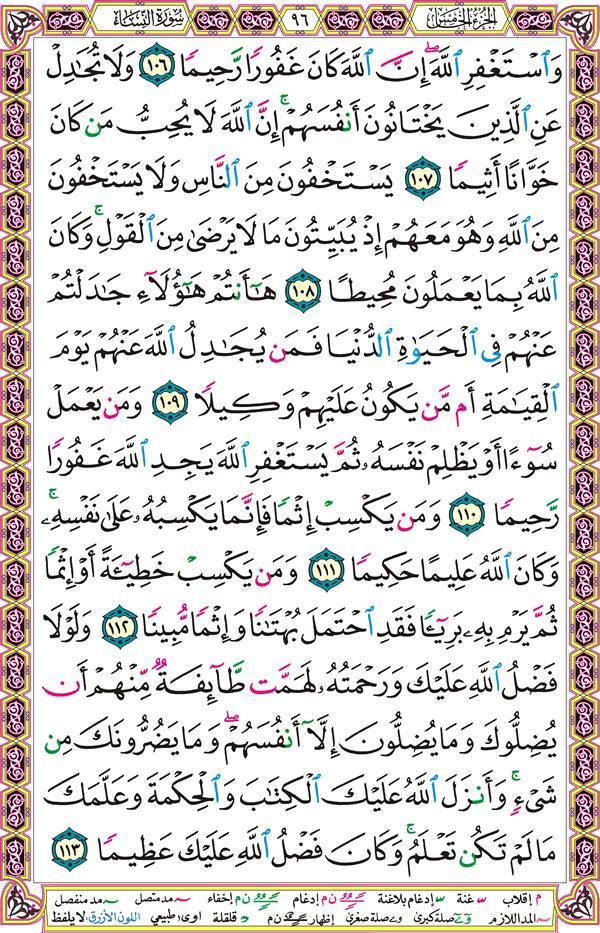 الجزء الخامس ٩٦ سورة النساء
وَٱسْتَغْفِرِ ٱللَّهَ ۖ إِنَّ ٱللَّهَ كَانَ غَفُورًا رَّحِيمًا ١٠٦ وَلَا تُجَٰدِلْ
عَنِ ٱلَّذِينَ يَخْتَانُونَ أَنفُسَهُمْ ۚ إِنَّ ٱللَّهَ لَا يُحِبُّ مَن كَانَ
خَوَّانًا أَثِيمًا ١٠٧ يَسْتَخْفُونَ مِنَ ٱلنَّاسِ وَلَا يَسْتَخْفُونَ
مِنَ ٱللَّهِ وَهُوَ مَعَهُمْ إِذْ يُبَيِّتُونَ مَا لَا يَرْضَىٰ مِنَ ٱلْقَوْلِ ۚ وَكَانَ
ٱللَّهُ بِمَا يَعْمَلُونَ مُحِيطًا ١٠٨ هَٰٓأَنتُمْ هَٰٓؤُلَآءِ جَٰدَلْتُمْ
عَنْهُمْ فِى ٱلْحَيَوٰةِ ٱلدُّنْيَا فَمَن يُجَٰدِلُ ٱللَّهَ عَنْهُمْ يَوْمَ
ٱلْقِيَٰمَةِ أَم مَّن يَكُونُ عَلَيْهِمْ وَكِيلًا ١٠٩ وَمَن يَعْمَلْ
سُوٓءًا أَوْ يَظْلِمْ نَفْسَهُۥ ثُمَّ يَسْتَغْفِرِ ٱللَّهَ يَجِدِ ٱللَّهَ غَفُورًا
رَّحِيمًا ١١٠ وَمَن يَكْسِبْ إِثْمًا فَإِنَّمَا يَكْسِبُهُۥ عَلَىٰ نَفْسِهِۦ ۚ
وَكَانَ ٱللَّهُ عَلِيمًا حَكِيمًا ١١١ وَمَن يَكْسِبْ خَطِيٓـَٔةً أَوْ إِثْمًا
ثُمَّ يَرْمِ بِهِۦ بَرِيٓـًٔا فَقَدِ ٱحْتَمَلَ بُهْتَٰنًا وَإِثْمًا مُّبِينًا ١١٢ وَلَوْلَا
فَضْلُ ٱللَّهِ عَلَيْكَ وَرَحْمَتُهُۥ لَهَمَّت طَّآئِفَةٌ مِّنْهُمْ أَن
يُضِلُّوكَ وَمَا يُضِلُّونَ إِلَّآ أَنفُسَهُمْ ۖ وَمَا يَضُرُّونَكَ مِن
شَىْءٍ ۚ وَأَنزَلَ ٱللَّهُ عَلَيْكَ ٱلْكِتَٰبَ وَٱلْحِكْمَةَ وَعَلَّمَكَ
مَا لَمْ تَكُن تَعْلَمُ ۚ وَكَانَ فَضْلُ ٱللَّهِ عَلَيْكَ عَظِيمًا ١١٣
م إقلاب غنة إدغام بلاغنة ن م إدغام ن م إخفاء مد متصل مد منفصل
المد اللازم صلة كبرى صلة صغرى إظهار ن م قلقلة اوى طبيعي اللون الأزرق: لا يلفظ